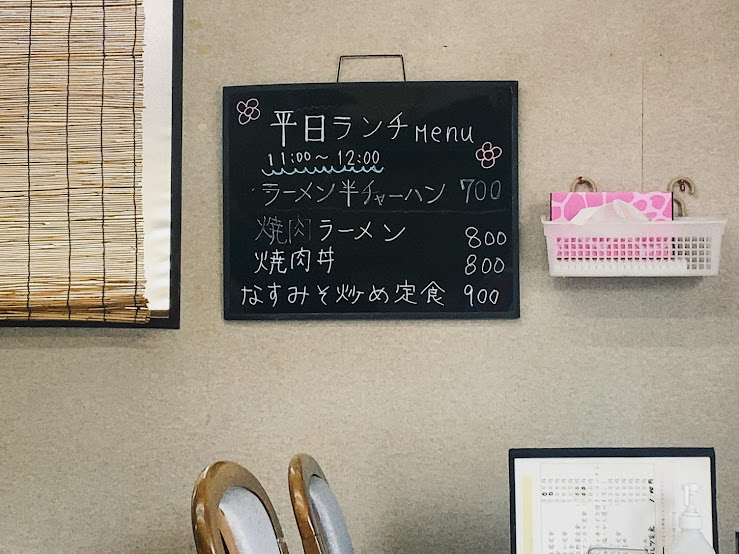 平日ランチMenu
11:00～12:00
ラーメン半チャーハン 700
焼肉ラーメン 800
焼肉丼 800
なすみそ炒め定食 900